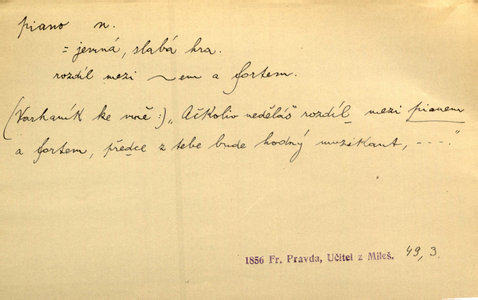 piano n.
= jemná, slabá hra.
rozdíl mezi ~em a fortem.
(Varhaník ke mně:) „Ačkoliv neděláš rozdíl mezi pianem
a fortem, předce z tebe bude hodný muzikant, ----."
1856 Fr. Pravda, Učitel z Mileš. 49, 3.